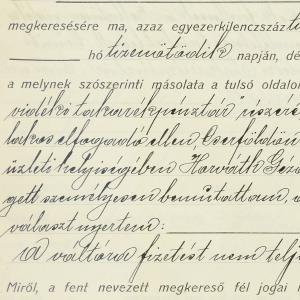 megkeresésére ma, azaz egyezerkilenczszáz
hó tizenötödik napján, dé
a melynek szószerinti másolata a tulsó oldalon
vidéki takarékpénztár részére
lakos elfogadó ellen, Cserföldön
üzleti helyiségében Horváth Géza
gett személyesen bemutattam, a
választ nyertem:
A váltóra fizetést nem telj
Miről, a fent nevezett megkereső fél jogai